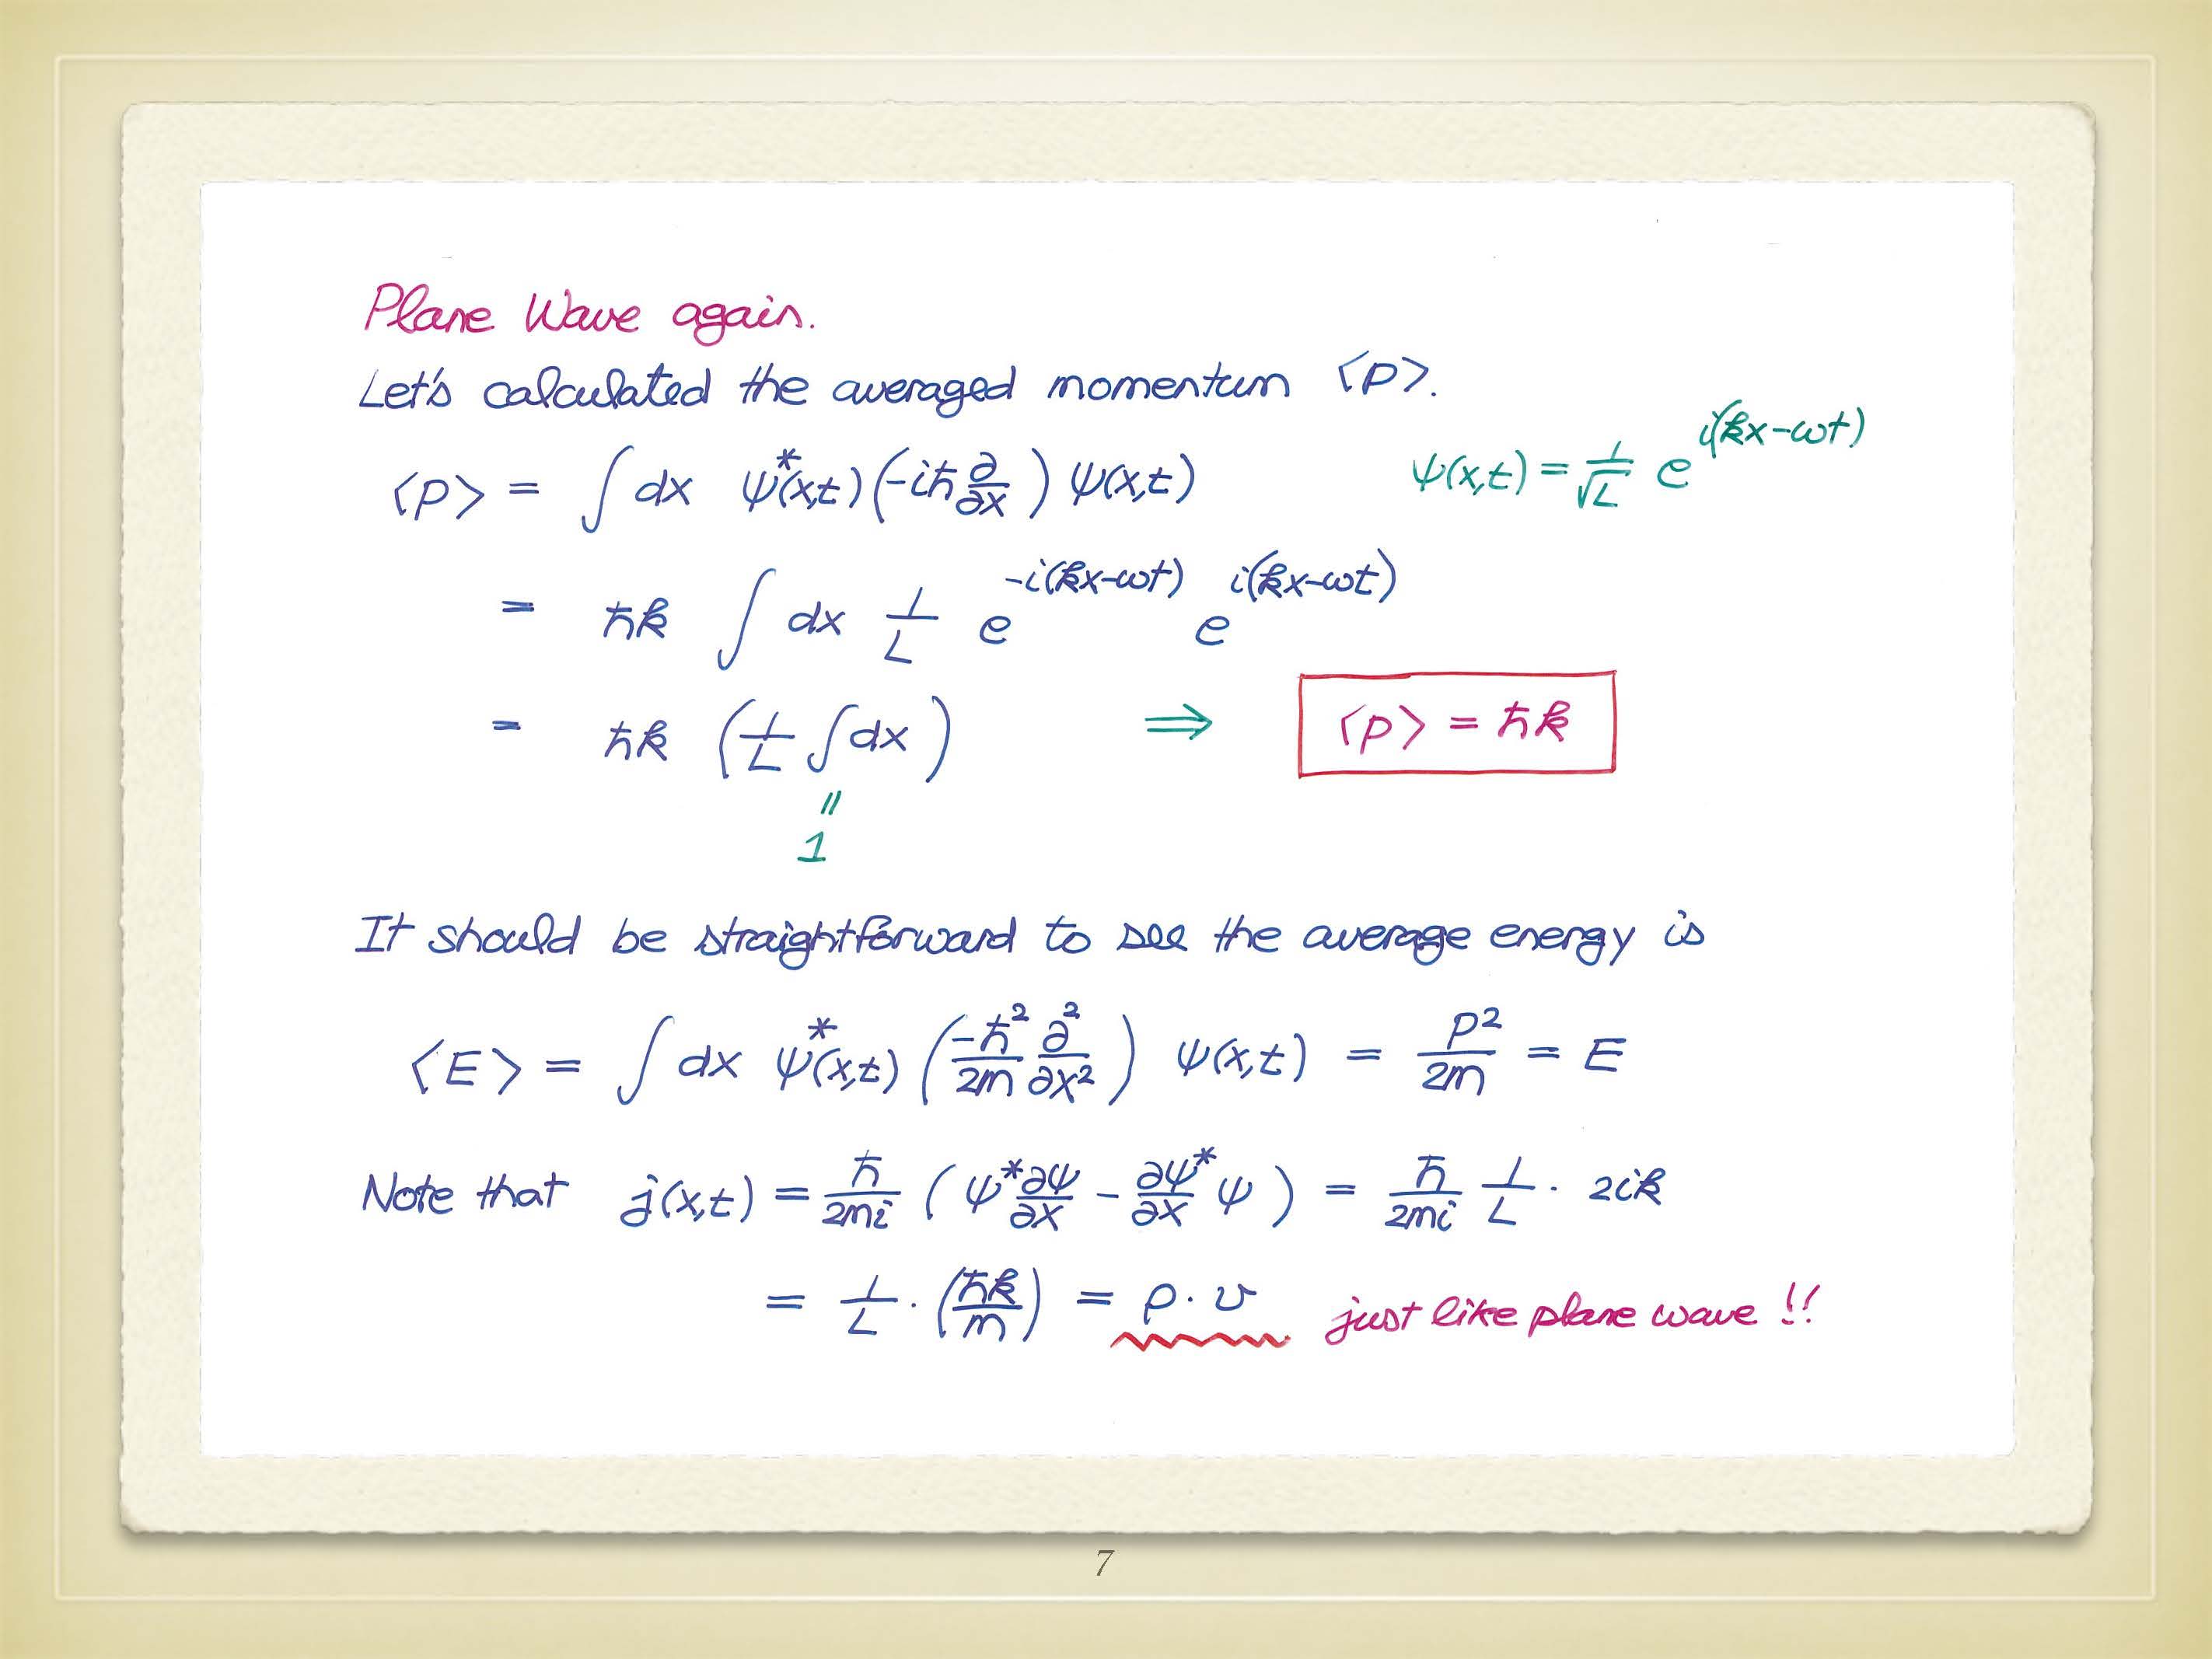 Plane Wave again.
Let's calculated the averaged momentum ⟨p⟩.
⟨p⟩ = ∫ dx ψ*(x,t) (-iħ ∂/∂x) ψ(x,t)    ψ(x,t) = 1/√L e^{i(kx-ωt)}
= ħk ∫ dx 1/L e^{-i(kx-ωt)} e^{i(kx-ωt)}
= ħk (1/L ∫ dx) ⇒ ⟨p⟩ = ħk
=
1
It should be straightforward to see the average energy is
⟨E⟩ = ∫ dx ψ*(x,t) (-ħ²/2m ∂²/∂x²) ψ(x,t) = p²/2m = E
Note that j(x,t) = ħ/2mi (ψ* ∂ψ/∂x - ∂ψ*/∂x ψ) = ħ/2mi 1/L · 2ik
= 1/L · (ħk/m) = ρ · v just like plane wave !!
7